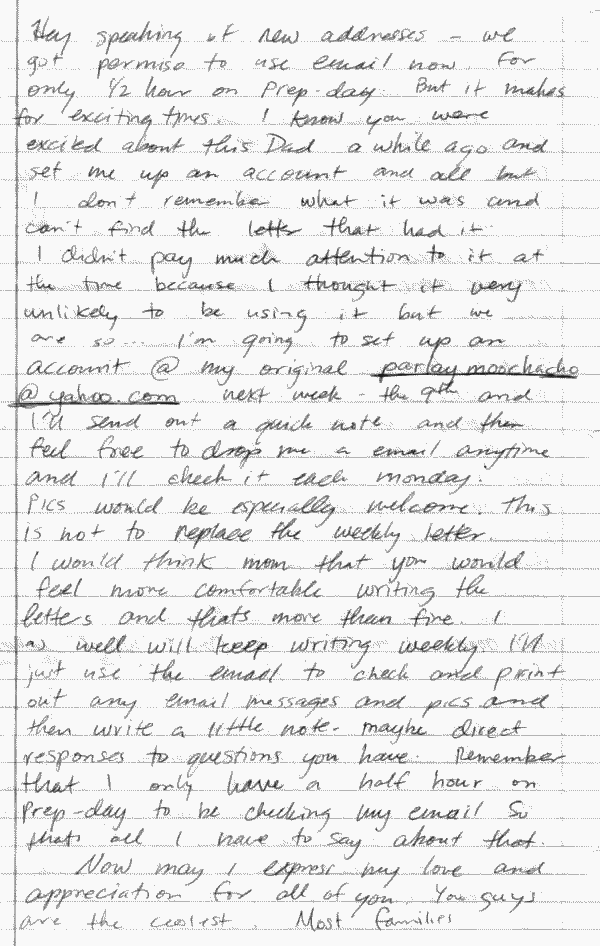 Hey speaking of new addresses - we
got permiso to use email now. For
only 1/2 hour on Prep-day. But it makes
for exciting times. I know you were
excited about this Dad a while ago and
set me up an account and all but
I don't remember what it was and
can't find the letter that had it.
I didn't pay much attention to it at
the time because I thought it very
unlikely to be using it but we
are so... I'm going to set up an
account @ my original parlay.moochacho
@yahoo.com next week - the 9th and
I'll send out a quick note and then
feel free to drop me a email anytime
and I'll check it each monday.
Pics would be especially welcome. This
is not to replace the weekly letter.
I would think mom that you would
feel more comfortable writing the
letters and thats more than fine. I
as well will keep writing weekly. I'll
just use the email to check and print
out any email messages and pics and
then write a little note - maybe direct
responses to questions you have. Remember
that I only have a half hour on
Prep-day to be checking my email So
thats all I have to say about that.
Now may I express my love and
appreciation for all of you. You guys
are the coolest. Most families